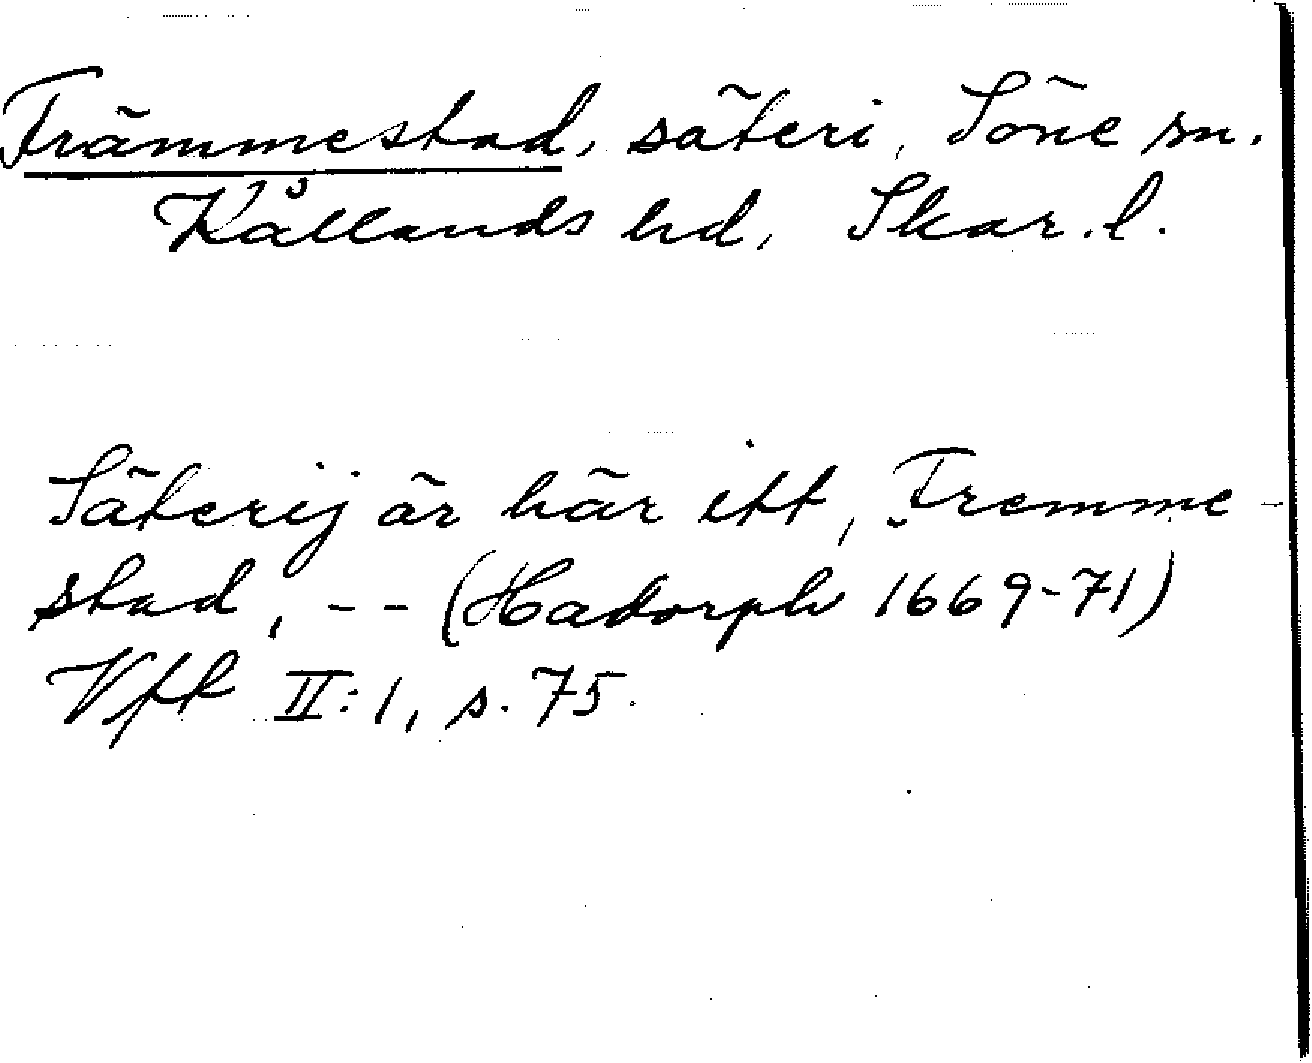 Främmestad, säteri, Söne sn.
Kållands hd, Skar. l.
Säterij är här ett, Fremme-
stad, -- (Hadorph 1669-71)
Vff II:1, s. 75.